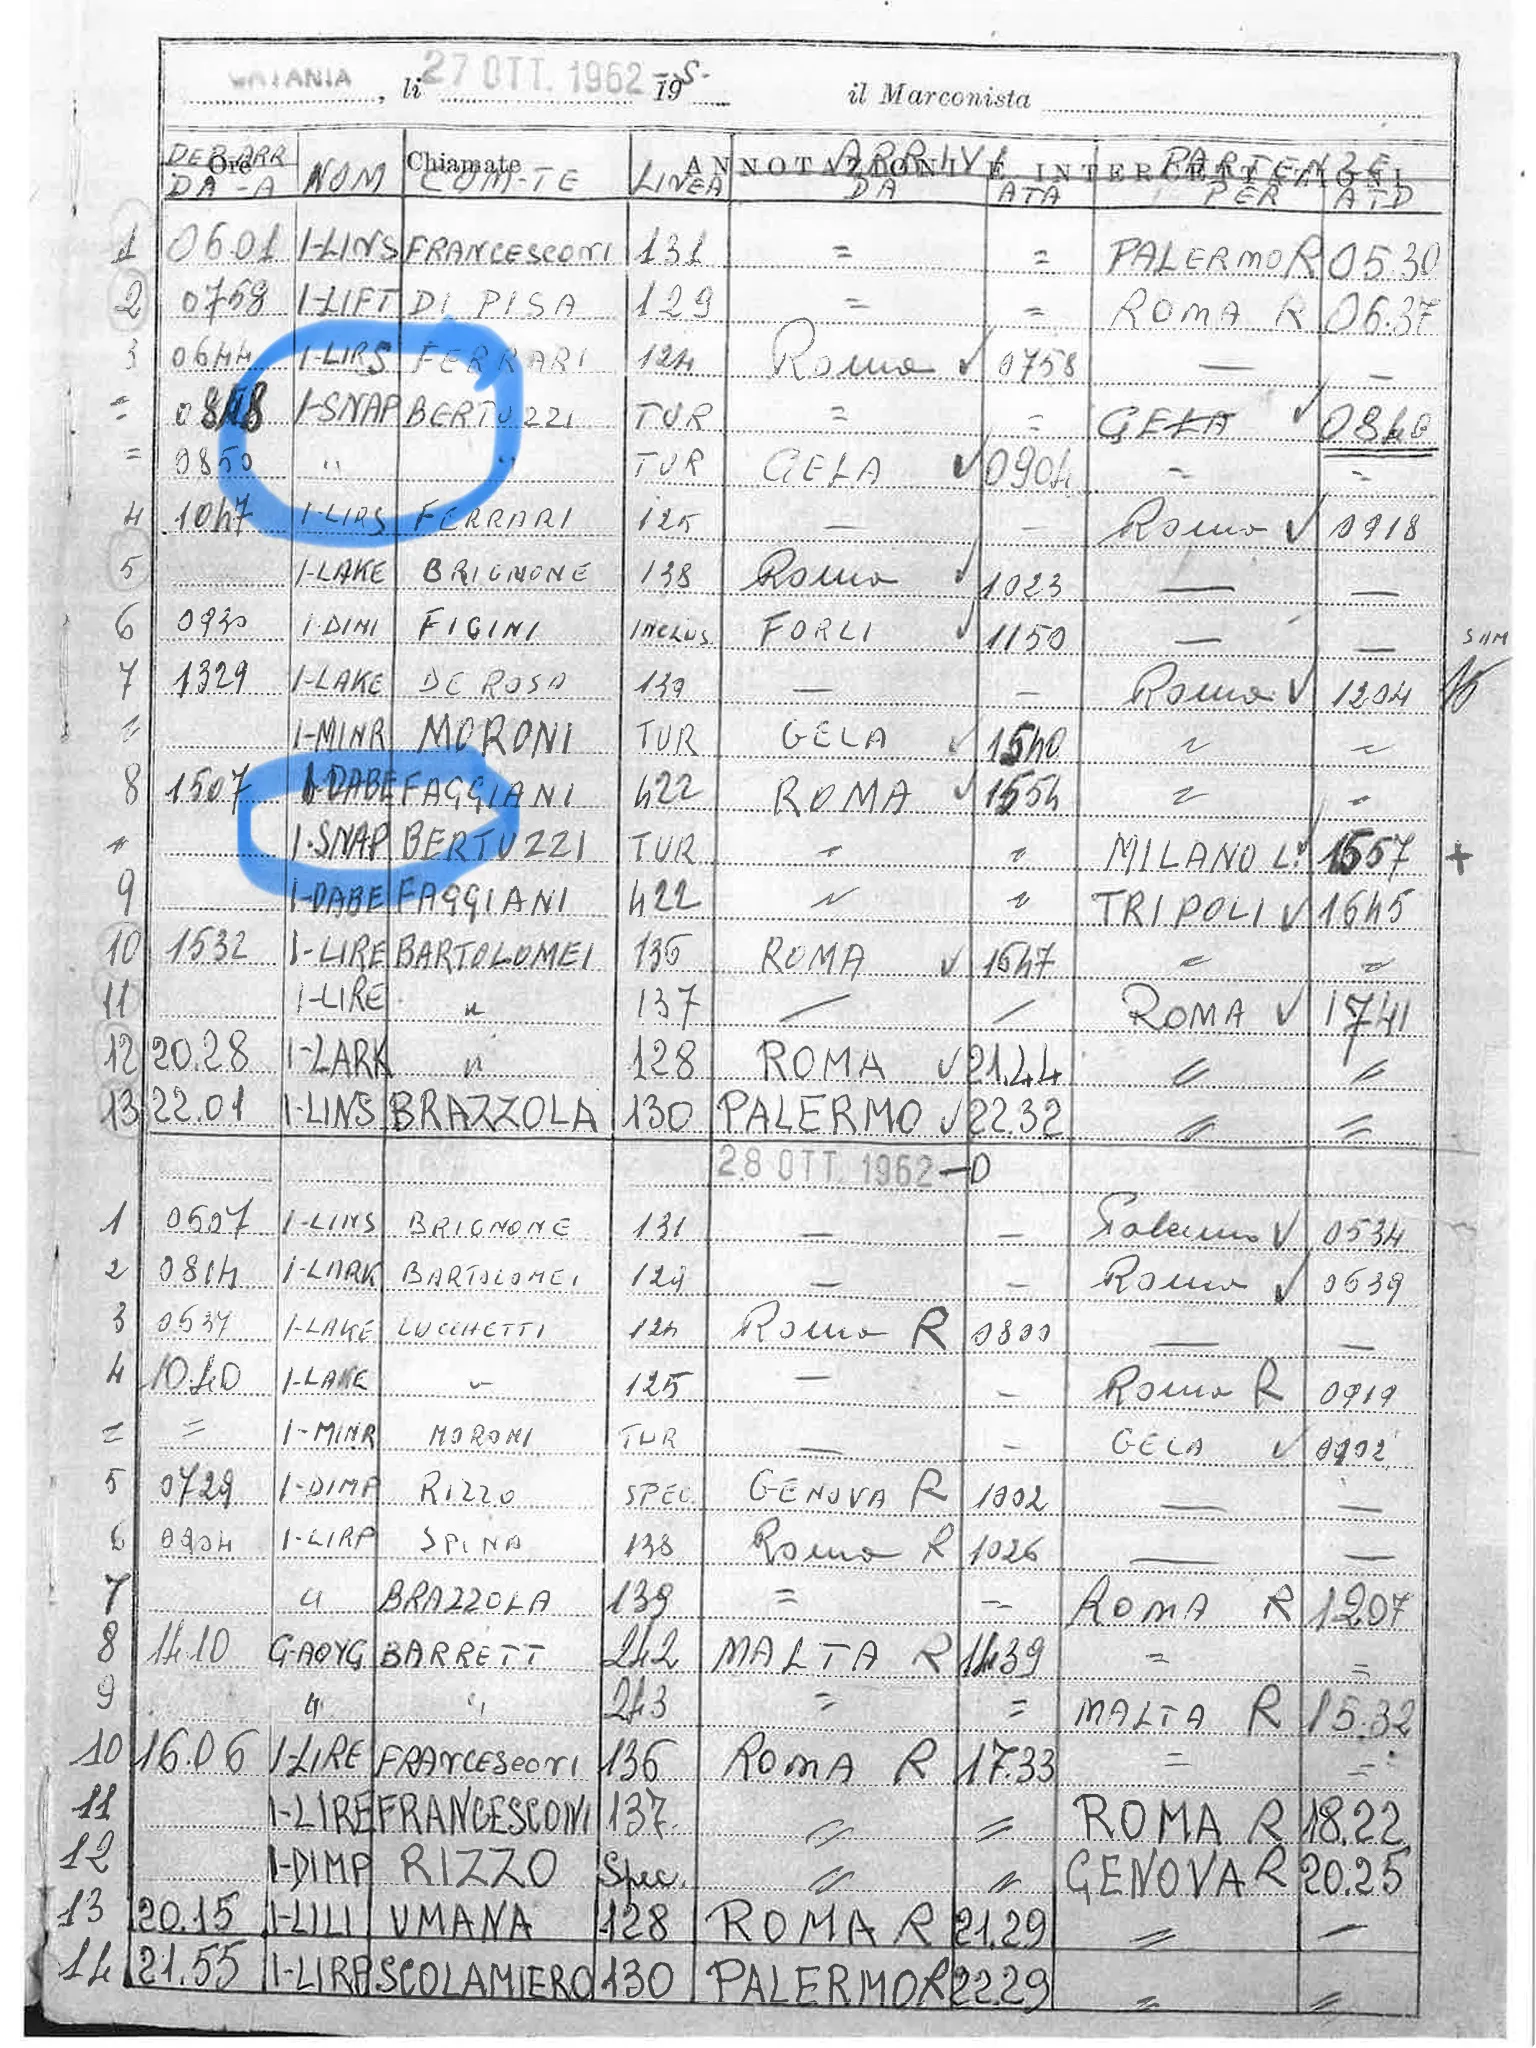 CATANIA , li 27 OTT. 1962 19 il Marconista
Ore Chiamate ANNOTAZIONI E INTERCETTAZIONI
DEP ARR ARRIVI PARTENZE
DA-A NOM COM-TE LINEA DA ATA PER ATD
1 0601 I-LINS FRANCESCONI 131 = = PALERMO R 05.30
2 0758 I-LIFT DI PISA 129 = = ROMA R 06.37
3 0644 I-LIRS FERRARI 124 Roma ✓ 0758 — —
= 0818 I-SNAP BERTUZZI TUR = = GELA ✓ 0840
= 0850 " " TUR GELA ✓ 0904 = =
4 1047 I-LIRS FERRARI 125 — — Roma ✓ 0918
5 I-LAKE BRIGNONE 138 Roma ✓ 1023 — —
6 0930 I-DINI FIGINI INCLUS. FORLI ✓ 1150 — —
7 1329 I-LAKE DE ROSA 139 — — Roma ✓ 1204
= I-MINR MORONI TUR GELA ✓ 1540 = =
8 1507 I-DABE FAGGIANI 422 ROMA ✓ 1554 = =
= I-SNAP BERTUZZI TUR = = MILANO L. ✓ 1557 +
9 I-DABE FAGGIANI 422 = = TRIPOLI ✓ 1645
10 1532 I-LIRE BARTOLOMEI 136 ROMA ✓ 1647 = =
11 I-LIRE " 137 — — ROMA ✓ 1741
12 20.28 I-LARK " 128 ROMA ✓ 21.44 = =
13 22.01 I-LINS BRAZZOLA 130 PALERMO ✓ 22.32 = =
28 OTT. 1962 -D
1 0607 I-LINS BRIGNONE 131 — — Palermo ✓ 0534
2 0814 I-LARK BARTOLOMEI 129 — — Roma ✓ 0639
3 0637 I-LAKE LUCCHETTI 124 Roma R 0800 — —
4 10.40 I-LAKE " 125 — — Roma R 0919
= = I-MINR MORONI TUR — — GELA ✓ 0902
5 0729 I-DIMP RIZZO SPEC. GENOVA R 1002 — —
6 0904 I-LIRP SPINA 138 Roma R 1026 — —
7 " BRAZZOLA 139 = = ROMA R 1207
8 14.10 G-AOYG BARRETT 242 MALTA R 1439 = =
9 " " 243 = = MALTA R 15.32
10 16.06 I-LIRE FRANCESCONI 136 ROMA R 17.33 = =
11 I-LIRE FRANCESCONI 137. = = ROMA R 18.22
12 I-DIMP RIZZO Spec. = = GENOVA R 20.25
13 20.15 I-LILI UMANA 128 ROMA R 21.29 = —
14 21.55 I-LIRP SCOLAMIERO 130 PALERMO R 22.29 = =